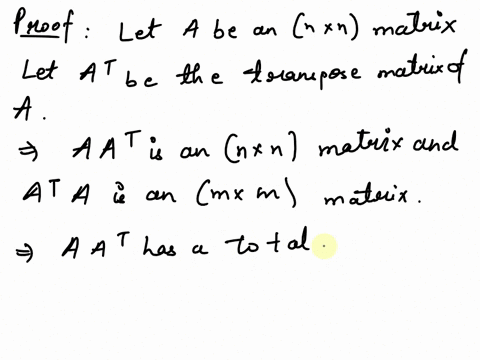 Proof : Let A be an (n×n) matrix
Let Aᵀ be the transpose matrix of
A.
⇒ A Aᵀ is an (n×n) matrix and
Aᵀ A is an (m×m) matrix.
⇒ A Aᵀ has a total.